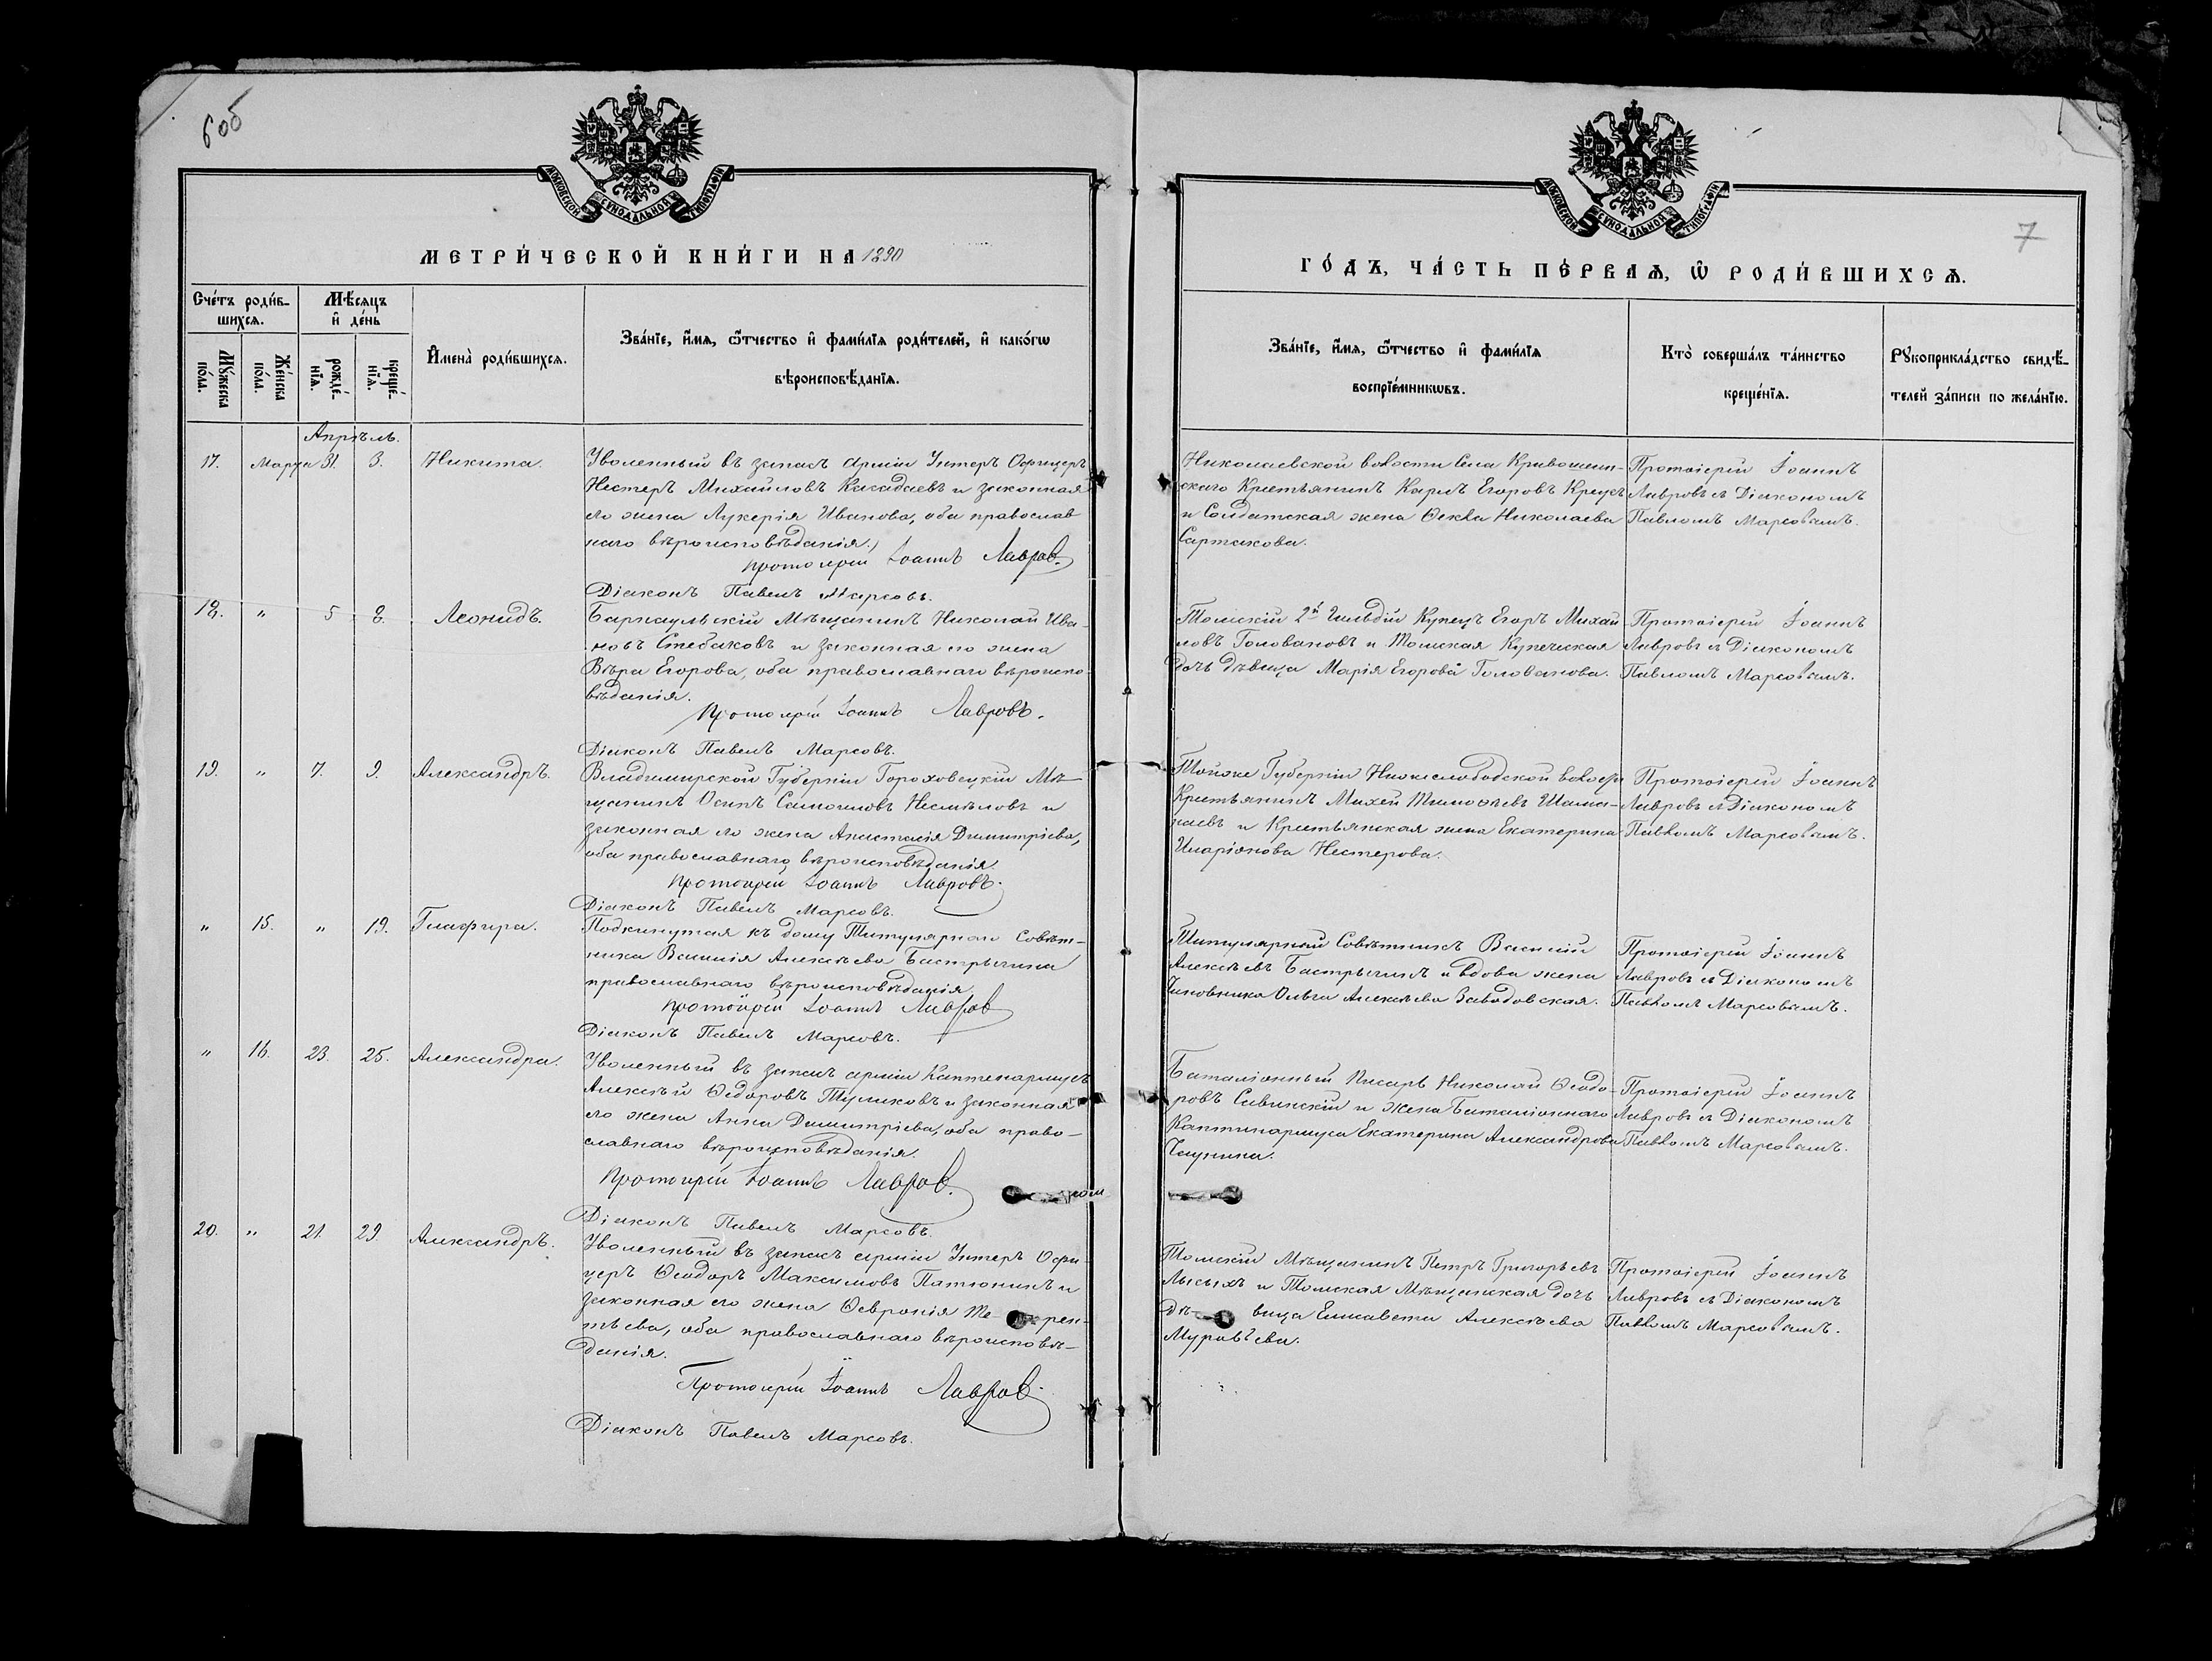 6об
МОСКОВСКОЙ СѴНОДАЛЬНОЙ ТИПОГРАФІИ
МЕТРИ́ЧЕСКОЙ КНИ́ГИ НА 1890
Сче́тъ роди́в-
шихсѧ.
Мѣ́сѧцъ
и҆ де́нь
Мꙋ́жеска
по́ла.
Же́нска
по́ла.
рожде́-
нїѧ.
креще́-
нїѧ.
И҆мена̀ роди́вшихсѧ.
Зва́нїе, и҆́мѧ, ѻ҆́тчество и҆ фами́лїѧ роди́телей, и҆ како́гѡ
вѣроисповѣ́данїѧ.
Апрѣль.
17. Марта 31. 3. Никита.
Уволенный въ запасъ Арміи Унтеръ Офицеръ
Нестеръ Михайловъ и законная
его жена Лукерія Иванова, оба православ
наго вѣроисповѣданія.
Протоіерей Іоаннъ Лавровъ.
Діаконъ Павелъ Марсовъ.
18. " 5 8. Леонидъ.
Барнаульскій Мѣщанинъ Николай Ива-
новъ Стебаковъ и законная его жена
Вѣра Егорова, оба православнаго вѣроиспо-
вѣданія.
Протоіерей Іоаннъ Лавровъ.
Діаконъ Павелъ Марсовъ.
19. " 7. 9. Александръ.
Владимирской Губерніи Гороховецкій Мѣ-
щанинъ Осипъ Самоиловъ Несмѣловъ и
законная его жена Анастасія Димитріева,
оба православнаго вѣроисповѣданія
Протоіерей Іоаннъ Лавровъ.
Діаконъ Павелъ Марсовъ.
" 15. " 19. Глафира.
Подкинутая къ дому Титулярнаго Совѣт-
ника Василія Алексѣева Бастрыгина
православнаго вѣроисповѣданія
Протоіерей Іоаннъ Лавровъ
Діаконъ Павелъ Марсовъ.
" 16. 23. 25. Александра.
Уволенный въ запасъ арміи Каптенармусъ
Алексѣй Ѳедоровъ Туликовъ и законная
его жена Анна Димитріева, оба право-
славнаго вѣроисповѣданія.
Протоіерей Іоаннъ Лавровъ.
Діаконъ Павелъ Марсовъ.
20. " 21. 29. Александръ.
Уволенный въ запасъ арміи Унтеръ Офи-
церъ Ѳеодоръ Максимовъ Патюнинъ и
законная его жена Ѳевронія Те рен-
тьева, оба православнаго вѣроисповѣ-
данія.
Протоіерей Іоаннъ Лавровъ.
Діаконъ Павелъ Марсовъ.
МОСКОВСКОЙ СѴНОДАЛЬНОЙ ТИПОГРАФІИ
7
ГО́ДЪ, ЧА́СТЬ ПЕ́РВАѦ, Ѡ҆ РОДИ́ВШИХСѦ.
Зва́нїе, и҆́мѧ, ѻ҆́тчество и҆ фами́лїѧ
воспрїе́мникѡвъ.
Кто̀ соверша́лъ та́инство
креще́нїѧ.
Рꙋкоприкла́дство свидѣ́-
телей за́писи по жела́нїю.
Николаевской волости Села Кривошеин-
скаго Крестьянинъ Карпъ Егоровъ
и Солдатская жена Ѳекла Николаева
Сартакова.
Протоіерей Іоаннъ
Лавровъ съ Діакономъ
Павломъ Марсовымъ.
Томскій 2й Гильдіи Купецъ Егоръ Михай-
ловъ Головановъ и Томская Купеческая
дочь дѣвица Марія Егорова Голованова.
Протоіерей Іоаннъ
Лавровъ съ Діакономъ
Павломъ Марсовымъ.
Тойже Губерніи Нижнеслободской волости
Крестьянинъ Михей Тимоѳеевъ
и Крестьянская жена Екатерина
Иларіонова Нестерова.
Протоіерей Іоаннъ
Лавровъ съ Діакономъ
Павломъ Марсовымъ.
Титулярный Совѣтникъ Василій
Алексѣевъ Бастрыгинъ и вдова жена
Чиновника Ольга Алексѣева Заводовская.
Протоіерей Іоаннъ
Лавровъ съ Діакономъ
Павломъ Марсовымъ.
Баталіонный Писарь Николай Ѳеодо-
ровъ Савинскій и жена Баталіоннаго
Каптинармуса Екатерина Александрова
Протоіерей Іоаннъ
Лавровъ съ Діакономъ
Павломъ Марсовымъ.
Томскій Мѣщанинъ Петръ Григорьевъ
Лысыхъ и Томская Мѣщанская дочь
дѣ вица Елисавета Алексѣева
Муравьева.
Протоіерей Іоаннъ
Лавровъ съ Діакономъ
Павломъ Марсовымъ.